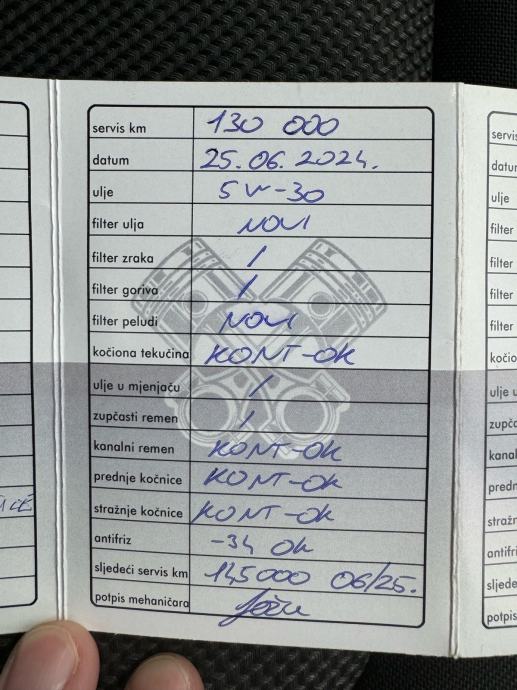 servis km 130 000
datum 25.06.2024.
ulje 5W-30
filter ulja NOVI
filter zraka /
filter goriva /
filter peludi NOVI
kočiona tekućina KONT-OK
ulje u mjenjaču /
zupčasti remen /
kanalni remen KONT-OK
prednje kočnice KONT-OK
stražnje kočnice KONT-OK
antifriz -34 OK
sljedeći servis km 145000 06/25.
potpis mehaničara
servis
datum
ulje
filter
filter
filter
filter
kočio
ulje u
zupča
kanal
predn
stražn
antifri
sljede
potpis